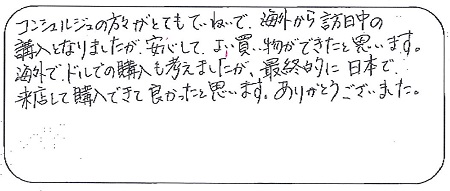 コンシェルジュの方々がとてもていねいで、海外から訪日中の
購入となりましたが、安心して、よい買い物ができたと思います。
海外で、ドルでの購入も考えましたが、最終的に日本で、
来店して購入できて良かったと思います。ありがとうございました。